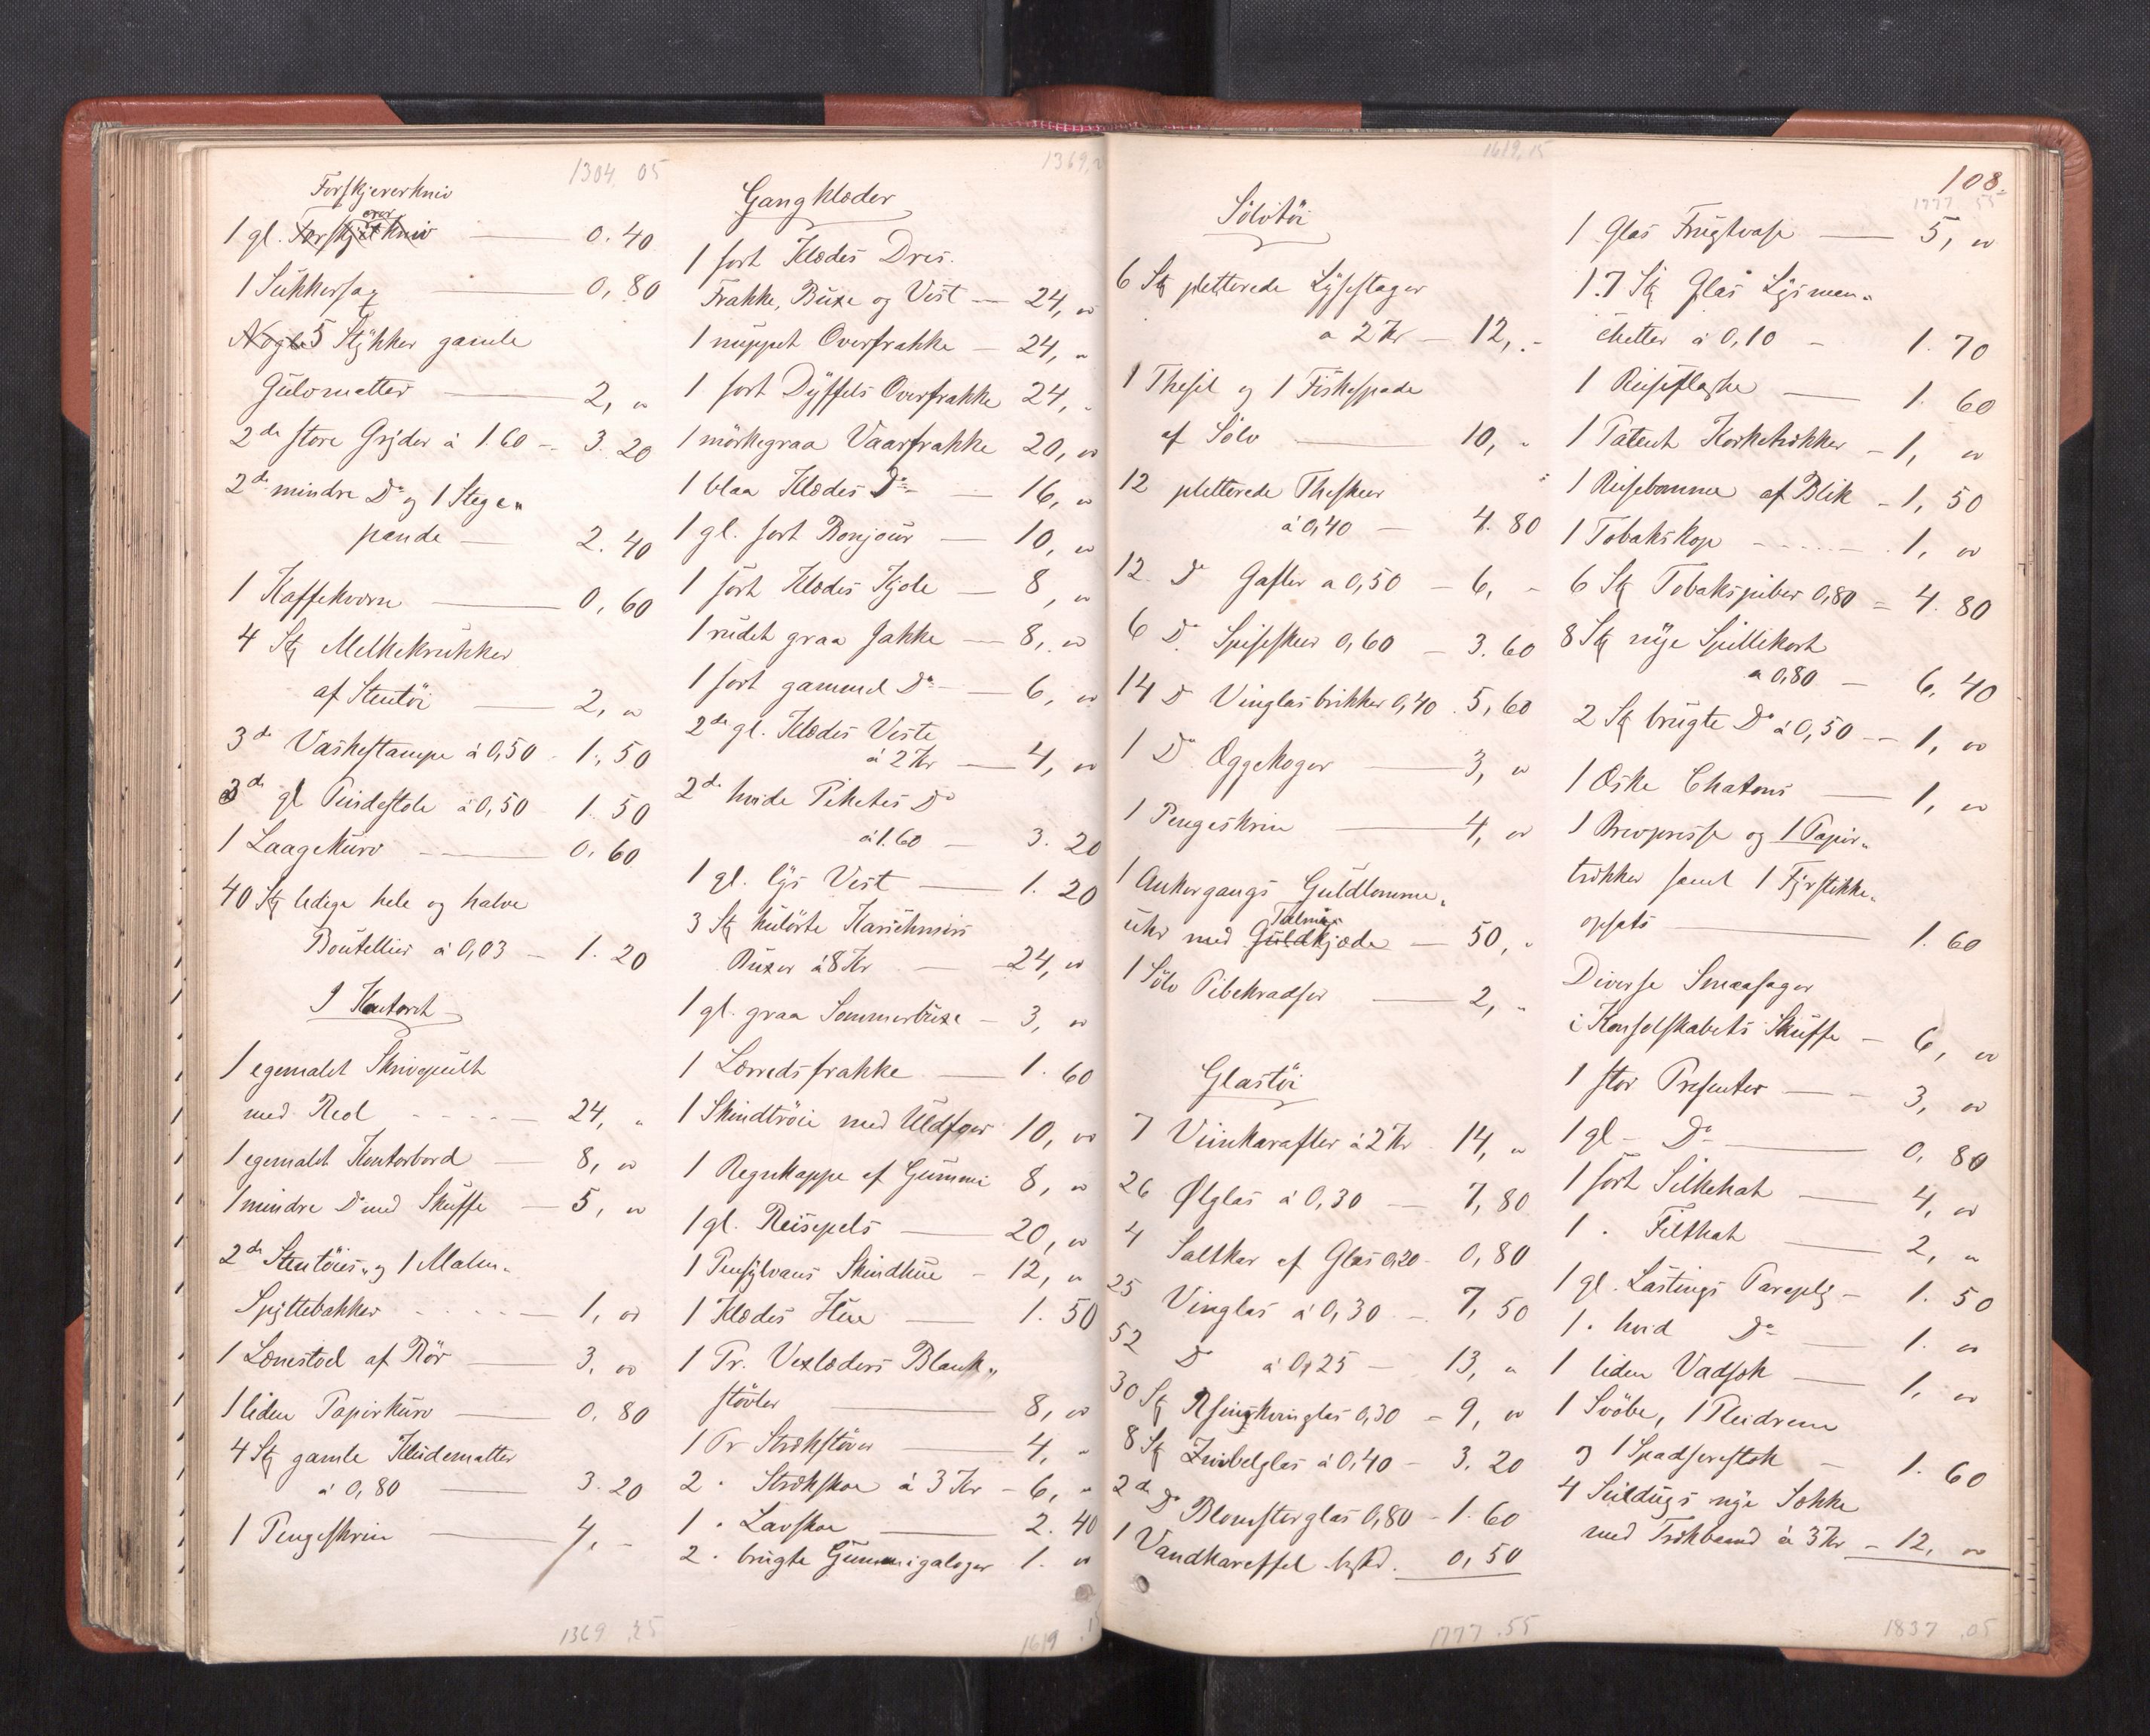 1304, 05
Forskjererkniv
1 gl. Forskjærerkniv — 0.40
1 Sukkersax — 0,80
Nogle 5 Stÿkker gamle
Gulvmatter — 2, "
2de store Grÿder à 1.60 — 3.20
2de mindre Do og 1 Stege„
pande — 2.40
1 Kaffekværn — 0,60
4 Stk Melkekrukker
af Stentöi — 2, "
3de Vaskestampe à 0,50 - 1,50
3de gl Pindestole à 0,50 1.50
1 Laagekurv — 0.60
40 Stk ledige hele og halve
Bouteillier à 0,03 — 1.20
I Kontoret
1 egemalet Skrivepult
med Reol - - - - 24, "
1 egemalet Kontorbord — 8, "
1 mindre Do med Skuffe — 5, "
2de Stentöies„ og 1 Malm„
Spÿttebakker - - - - 1, "
1 Lænestoel af Rör — 3, "
1 liden Papirkurv — 0,80
4 Stk gamle Kludematter
à 0,80 — 3.20
1 Pengeskrin — 4, -
1369.25
1369,2
Gangklæder
1 sort Klædes Dres.
Frakke, Buxe og Vest — 24, "
1 nuppet Overfrakke — 24, "
1 sort Dÿffels Overfrakke 24, "
1 mörkegraa Vaarfrakke 20, "
1 blaa Klædes Do — 16, "
1 gl. sort Bonjour — 10, "
1 sort Klædes Kjole — 8, "
1 rudet graa Jakke — 8, "
1 sort gammel Do — 6, "
2de gl. Klædes Veste
à 2 Kr — 4, "
2de hvide Pikétes Do
à 1.60 — 3.20
1 gl. lÿs Vest — 1.20
3 Stk kulörte
Buxer à 8 Kr — 24, "
1 gl. graa Sommerbuxe — 3, "
1 Lærredsfrakke — 1.60
1 Skindtröie med Uldfoer 10, "
1 Regnkappe af Gummi 8, "
1 gl. Reisepels — 20, "
1 Pensÿlvans Skindhue — 12, "
1 Klædes Hue — 1.50
1 Pr. Vexlæders Blank„
støvler — 8, "
1 Pr Strækstövler — 4, "
2 " Strækskoe à 3 Kr — 6, "
1 " Lavskoe — 2.40
2 " brugte Gummigaloger 1. "
1619.1
1619,15
Sölvtöi
6 Stk pletterede Lÿsestager
a 2 Kr — 12, -
1 Thesil og 1 Fiskespade
af Sölv — 10, "
12 pletterede Theskeer
à 0,40 — 4.80
12 Do Gafler a 0,50 — 6, -
6 Do Spiseskeer 0,60 — 3.60
14 Do Vinglasbrikker 0,40 . 5,60
1 Do Æggekoger — 3, "
1 Pengeskrin — 4, "
1 Ankergangs Guldlomme„
uhr med Guldkjæde — 50, "
1 Sölv Pibekradser — 2, "
Glastöi
7 Viinkarafler à 2 Kr . 14, "
26 Ølglas à 0,30 — 7,80
4 Saltkar af Glas 0,20 - 0,80
25 Vinglas à 0,30 — 7,50
52 Do à 0,25 — 13, "
30 Stk Rhinskvinglas 0,30 — 9, "
8 Stk Zwibelglas à 0,40 — 3.20
2de Do Blomsterglas 0,80 - 1.60
1 Vandkaraffel 0,50
1777.55
108.
1777 55
1 Glas Frugtvase — 5, "
17 Stk Glas Lÿsman„
chetter à 0,10 - 1.70
1 Reiseflaske — 1.60
1 Patent Korketrækker - 1, "
1 Reisebomme af Blik - 1,50
1 Tobakskop - - - - 1, "
6 Stk Tobakspiber 0,80 = 4.80
8 Stk nÿe Spillekort
a 0,80 — 6,40
2 Stk brugte Do à 0,50 — 1, "
1 Æske Chatons — 1, "
1 Brevpresse og 1 Papir„
trÿkker samt 1 Fÿrstikke„
opsats — 1.60
Diverse Smaasager
i Konsolskabets Skuffe — 6, "
1 stor Presenter — 3, "
1 gl - Do — 0.80
1 sort Silkehat — 4, "
1 " Filthat — 2, "
1 gl. Lastings Paraplÿ — 1.50
1 " hvid Do — 1. "
1 liden Vadsæk — 1, "
1 Svöbe, 1 Pleidrem
og 1 Spadserestok — 1.60
4 Seildugs nÿe Sække
med Trækbaand à 3 Kr - 12, "
1837.05